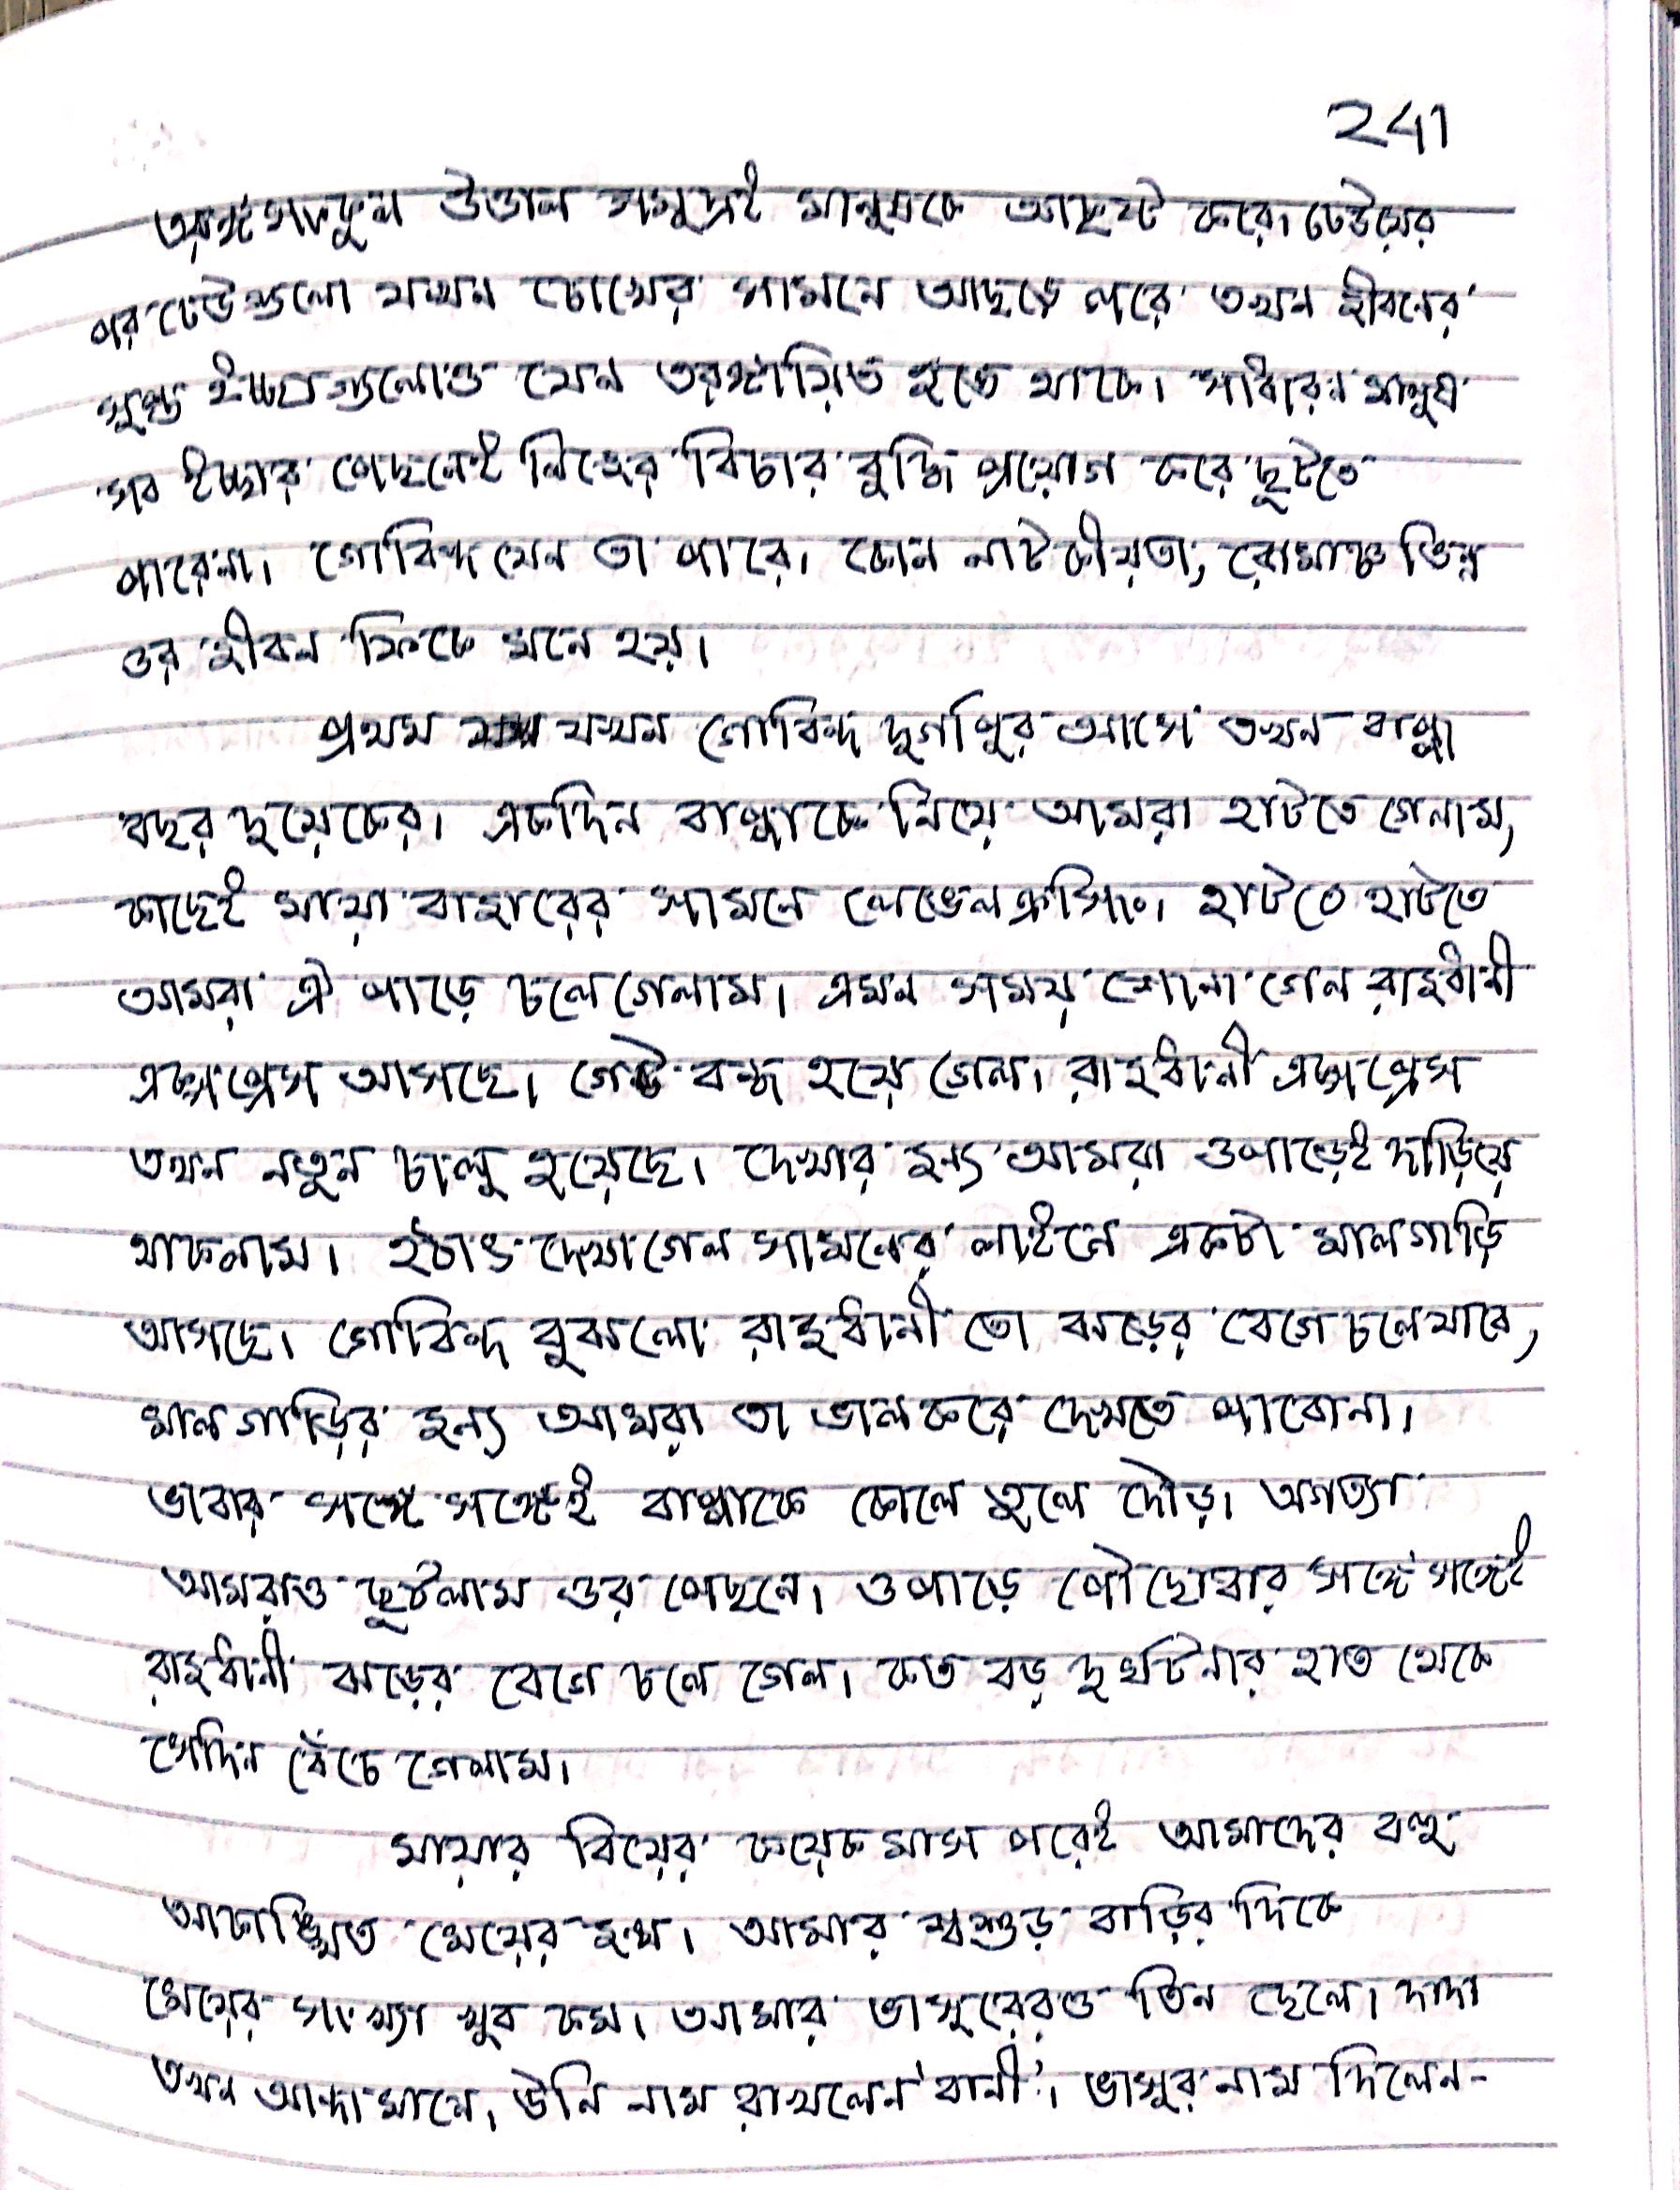 241
তরঙ্গসঙ্কুল উত্তাল সমুদ্রই মানুষকে আকৃষ্ট করে। ঢেউয়ের
পর ঢেউগুলো যখন চোখের সামনে আছড়ে পরে তখন জীবনের
সুপ্ত ইচ্ছেগুলোও যেন তরঙ্গায়িত হতে থাকে। সাধারন মানুষ
সব ইচ্ছার পেছনেই নিজের বিচার বুদ্ধি প্রয়োগ করে ছুটতে
পারেনা। গোবিন্দ যেন তা পারে। কোন নাটকীয়তা, রোমাঞ্চ ভিন্ন
ওর জীবন ফিকে মনে হয়।
প্রথম যখন গোবিন্দ দুর্গাপুর আসে তখন বাপ্পা
বছর দুয়েকের। একদিন বাপ্পাকে নিয়ে আমরা হাটতে গেলাম,
কাছেই মায়া বাজারের সামনে লেভেলক্রসিং। হাটতে হাটতে
আমরা ঐ পাড়ে চলে গেলাম। এমন সময় শোনা গেল রাজধানী
এক্সপ্রেস আসছে। গেট বন্ধ হয়ে গেল। রাজধানী এক্সপ্রেস
তখন নতুন চালু হয়েছে। দেখার জন্য আমরা ওপাড়েই দাড়িয়ে
থাকলাম। হঠাৎ দেখা গেল সামনের লাইনে একটা মালগাড়ি
আসছে। গোবিন্দ বুঝলো রাজধানী তো ঝড়ের বেগে চলে যাবে,
মালগাড়ির জন্য আমরা তা ভাল করে দেখতে পাবোনা।
ভাবার সঙ্গে সঙ্গেই বাপ্পাকে কোলে তুলে দৌড়। অগত্যা
আমরাও ছুটলাম ওর পেছনে। ওপাড়ে পৌছোবার সঙ্গে সঙ্গেই
রাজধানী ঝড়ের বেগে চলে গেল। কত বড় দুর্ঘটনার হাত থেকে
সেদিন বেঁচে গেলাম।
মায়ার বিয়ের কয়েক মাস পরেই আমাদের বহু
আকাঙ্খিত মেয়ের জন্ম। আমার শ্বশুড় বাড়ির দিকে
মেয়ের সংখ্যা খুব কম। আমার ভাসুরেরও তিন ছেলে। দাদা
তখন আন্দামানে, উনি নাম রাখলেন 'বানী'। ভাসুর নাম দিলেন-